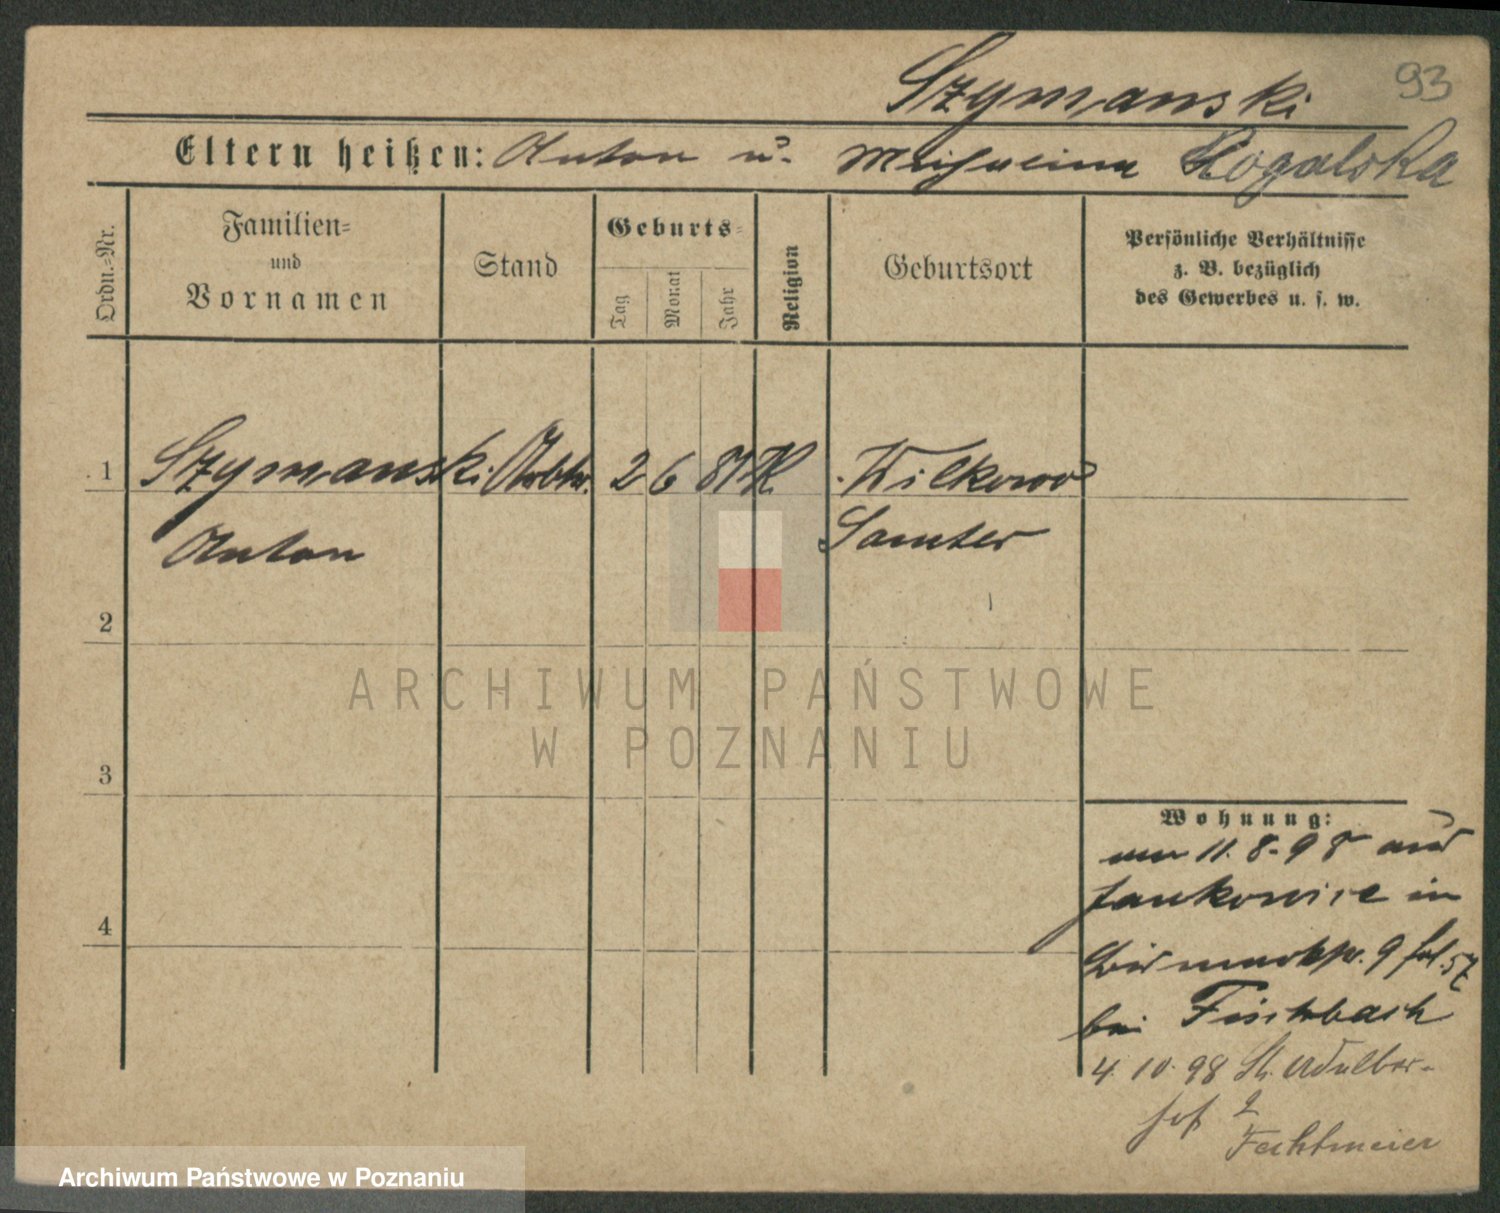 Szymanski
93
Eltern heißen: Anton u. Rogalska
Ordn.-Nr.
Familien=
und
Vornamen
Stand
Geburts=
Tag
Monat
Jahr
Religion
Geburtsort
Persönliche Verhältnisse
z. B. bezüglich
des Gewerbes u. s. w.
1 Szymanski Arbtr. 2 6 K Wilkowo
Anton Samter
2
3
4
ARCHIWUM PAŃSTWOWE
W POZNANIU
Wohnung:
11. 8. 98 aus
Jankowice in
9
bei Fischbach
4. 10. 98 St. Adalber-
2
Fechtmeier
Archiwum Państwowe w Poznaniu